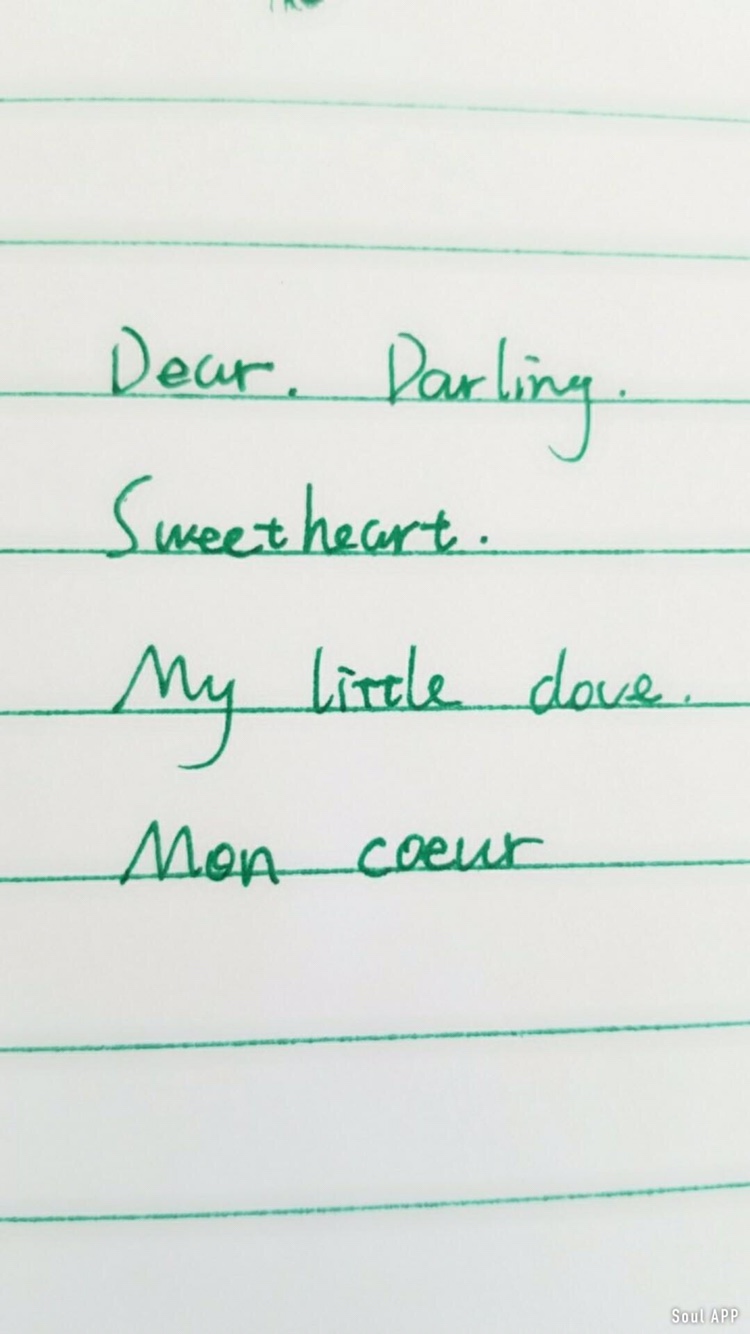 Dear. Darling.
Sweetheart.
My little dove.
Mon coeur
Soul APP